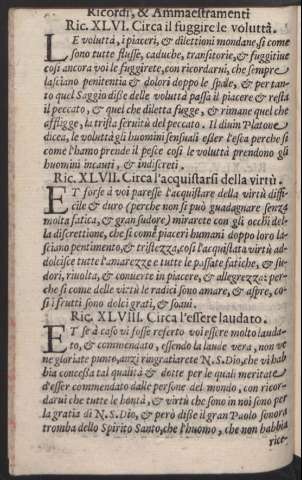 Ricordi, & Ammaestramenti
Ric. XLVI. Circa il fuggire le voluttà.
LE voluttà, i piaceri, & dilettioni mondane, si come
sono tutte flusse, caduche, transitorie, & fuggitiue
così ancora voi le fuggirete, con ricordarui, che sempre
lasciano penitentia & dolori doppo le spale, & per tan-
to quel Saggio disse delle voluttà passa il piacere & resta
il peccato, & quel che diletta fugge, & rimane quel che
affligge, la trista seruitù del peccato. Il diuin Platone
dicea, le voluttà gli huomini sensuali esser l'esca perche sì
come l'hamo prende il pesce così le voluttà prendono gli
huomini incauti, & indiscreti.
Ric. XLVII. Circa l'acquistarsi della virtù.
ET forse à voi paresse l'acquistare della virtù diffi-
cile & duro (perche non si può guadagnare senza
molta fatica, & gran sudore) mirarete con gli occhi del-
la discrettione, che sì come piaceri humani doppo loro la-
sciano pentimento, & tristezza, così l'acquistata virtù ad-
dolcisce tutte l'amarezze e tutte le passate fatiche, & su-
dori, riuolta, & conuerte in piacere, & allegrezza: per-
che sì come delle virtù le radici sono amare, & aspre, co-
sì i frutti sono dolci grati, & soaui.
Ric. XLVIII. Circa l'essere laudato.
ET se à caso vi fosse referto voi essere molto lauda-
to, & commendato, essendo la laude vera, non ve
ne gloriate punto, anzi ringratiarete N. S. Dio, che vi hab
bia concessa tal qualità & dotte per le quali meritate
d'esser commendato dalle persone del mondo, con ricor-
darui che tutte le bontà, & virtù che sono in noi sono per
la gratia di N. S. Dio, & però disse il gran Paolo sonora
tromba dello Spirito Santo, che l'huomo, che non habbia
rice-